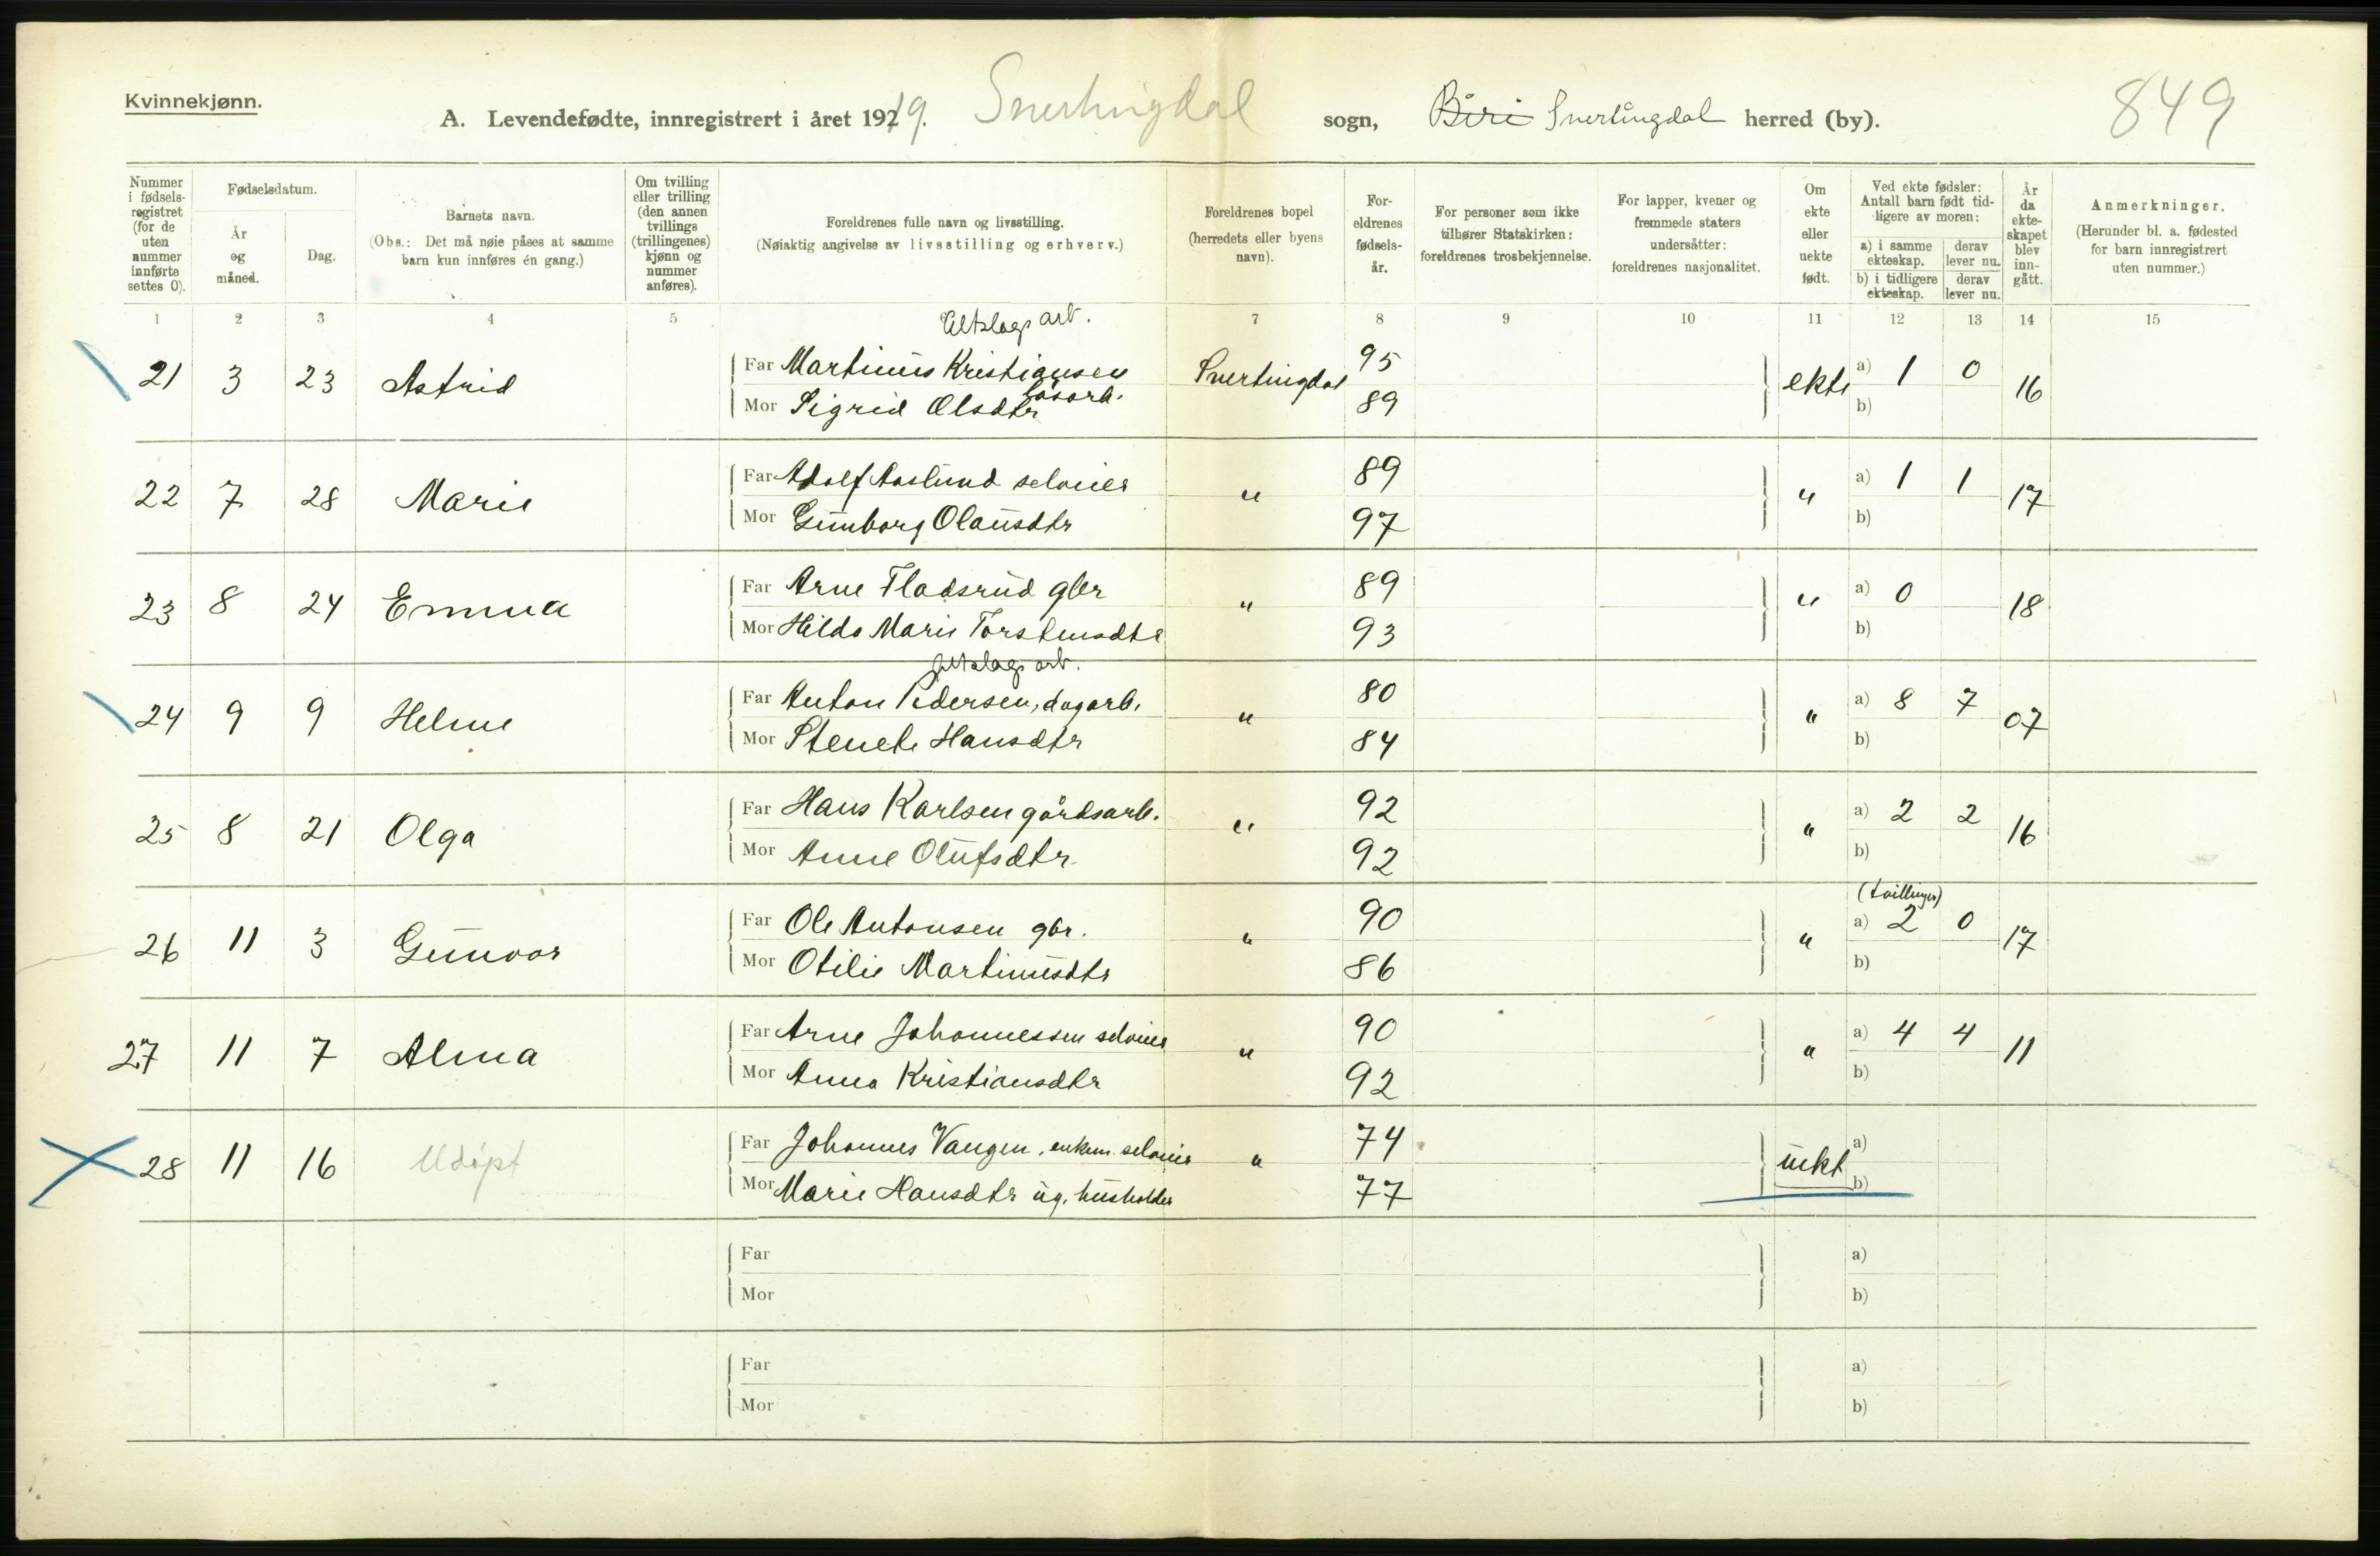 Kvinnekjønn.
A. Levendefødte, innregistrert i året 1919. Snertingdal sogn, Biri Snertingdal herred (by). 849
Nummer i fødselsregistret (for de uten nummer innførte settes 0).
Fødselsdatum.
År og måned.
Dag.
Barnets navn.
(Obs.: Det må nøie påses at samme barn kun innføres én gang.)
Om tvilling eller trilling (den annen tvillings (trillingenes) kjønn og nummer anføres).
Foreldrenes fulle navn og livsstilling.
(Nøiaktig angivelse av livsstilling og erhverv.)
Foreldrenes bopel (herredets eller byens navn).
Foreldrenes fødselsår.
For personer som ikke tilhører Statskirken: foreldrenes trosbekjennelse.
For lapper, kvener og fremmede staters undersåtter: foreldrenes nasjonalitet.
Om ekte eller uekte født.
Ved ekte fødsler: Antall barn født tidligere av moren:
a) i samme ekteskap. derav lever nu.
b) i tidligere ekteskap. derav lever nu.
År da ekteskapet blev inngått.
Anmerkninger.
(Herunder bl. a. fødested for barn innregistrert uten nummer.)
1 2 3 4 5 7 8 9 10 11 12 13 14 15
arb.
21 3 23 Astrid Far Martinus Kristiansen Snertingdal 95 ekte a) 1 0 16
løsarb.
Mor Sigrid Olsdtr 89 b)
22 7 28 Marie Far Adolf Aaslund selveier " 89 " a) 1 1 17
Mor Gunborg Olausdtr 97 b)
23 8 24 Emma Far Arne Fladsrud gbr " 89 " a) 0 18
Mor Hilda Marie Torstensdtr 93 b)
arb.
24 9 9 Helene Far Anton Pedersen, dagarb. " 80 " a) 8 7 07
Mor Stenete Hansdtr 84 b)
25 8 21 Olga Far Hans Karlsen gårdsarb. " 92 " a) 2 2 16
Mor Anne Olufsdtr 92 b)
(tvillinger)
26 11 3 Gunvor Far Ole Antonsen gbr. " 90 " a) 2 0 17
Mor Otilie Martinusdtr 86 b)
27 11 7 Alma Far Arne Johannessen selveier " 90 " a) 4 4 11
Mor Anna Kristiansdtr 92 b)
28 11 16 Udøpt Far Johannes Vangen, enkem. selveier " 74 uekt a)
Mor Marie Hansdtr ug. husholder 77 b)
Far a)
Mor b)
Far a)
Mor b)